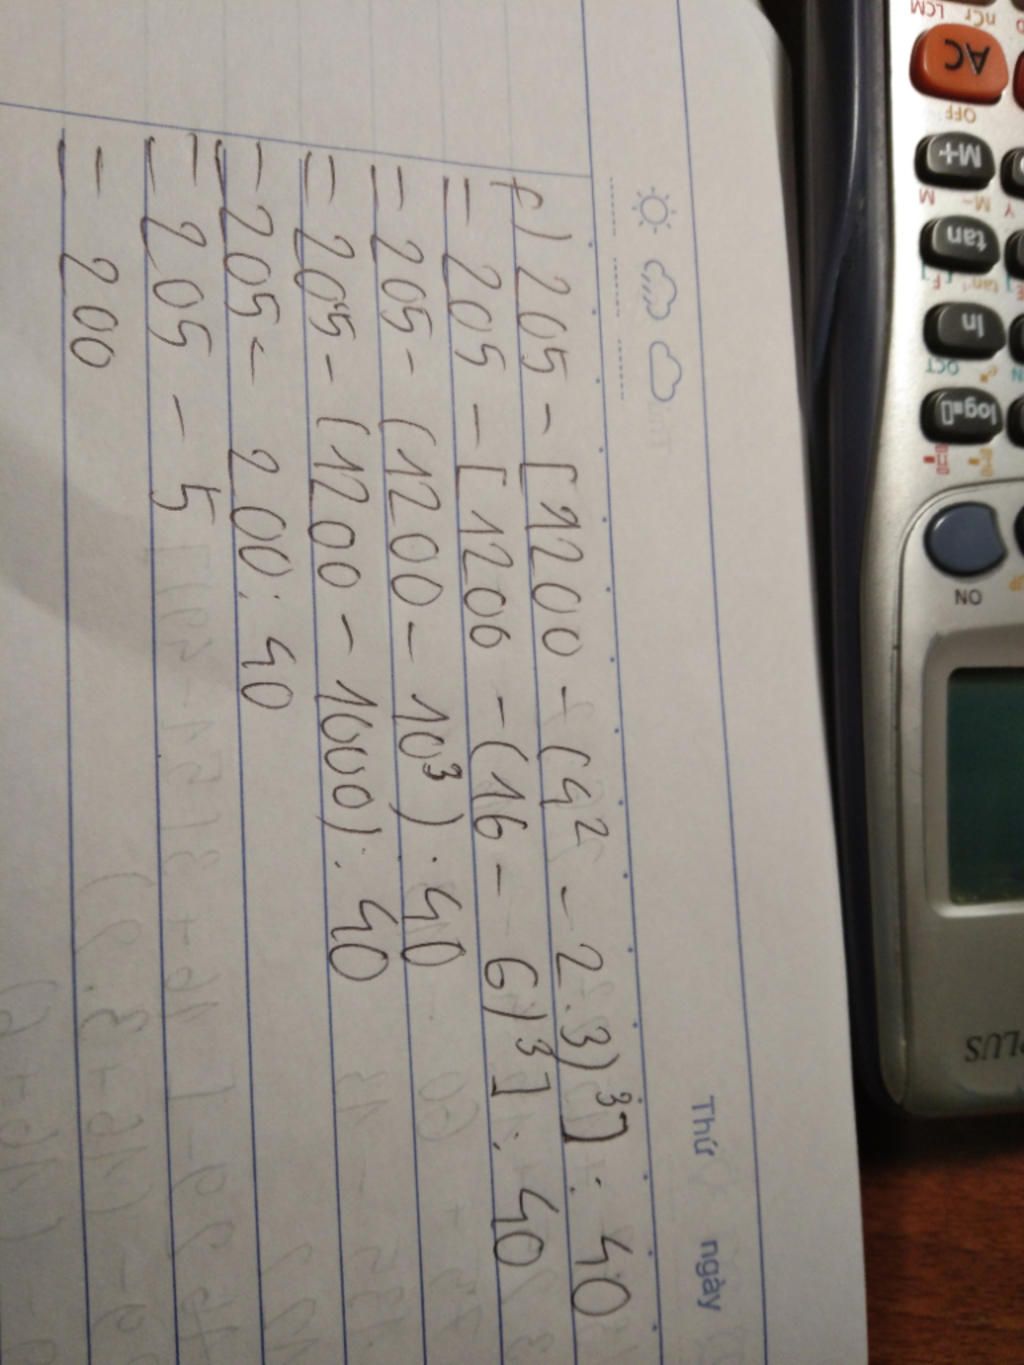 Thứ ngày
f) 205 - [1200 - (4² - 2.3)³] : 40
= 205 - [1200 - (16 - 6)³] : 40
= 205 - (1200 - 10³) : 40
= 205 - (1200 - 1000) : 40
= 205 - 200 : 40
= 205 - 5
= 200
LCM nCr
AC
OFF
M+
M M-
tan
tan⁻¹
ln
OCT
log
ON
PLUS